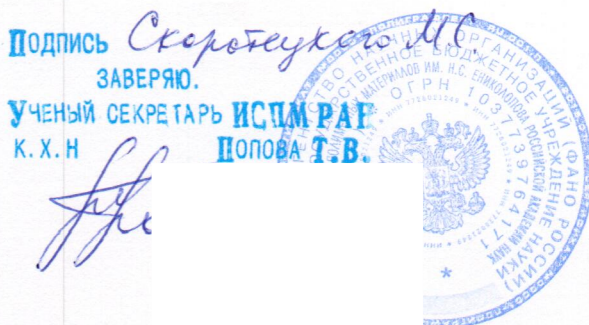 Подпись Скоротецкого М.С.
ЗАВЕРЯЮ.
Ученый секретарь ИСПМ РАН
К.Х.Н Попова Т.В.
АГЕНТСТВО НАУЧНЫХ ОРГАНИЗАЦИЙ (ФАНО РОССИИ)
БЮДЖЕТНОЕ УЧРЕЖДЕНИЕ НАУКИ
МАТЕРИАЛОВ ИМ. Н.С. ЕНИКОЛОПОВА РОССИЙСКОЙ АКАДЕМИИ НАУК
ОГРН 1037739764171